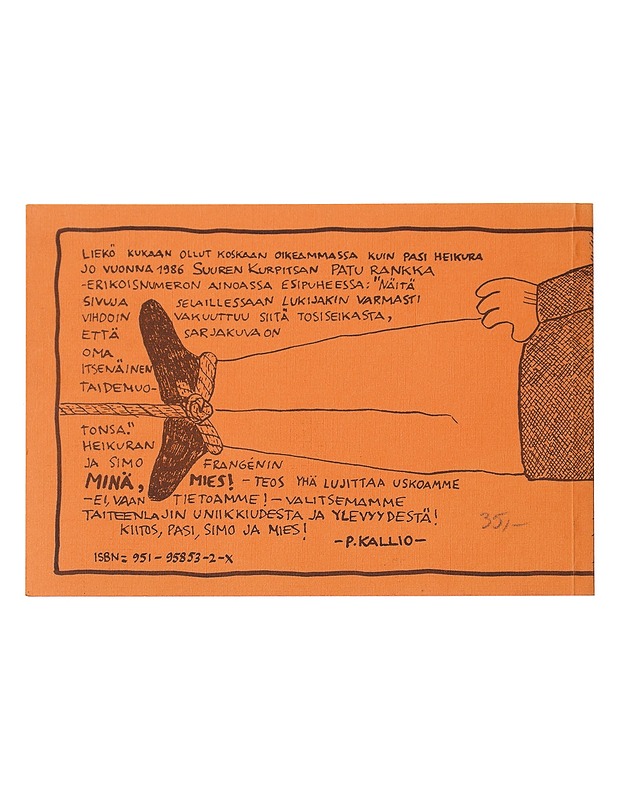 LIEKÖ KUKAAN OLLUT KOSKAAN OIKEAMMASSA KUIN PASI HEIKURA
JO VUONNA 1986 SUUREN KURPITSAN PATU RANKKA
-ERIKOISNUMERON AINOASSA ESIPUHEESSA: "NÄITÄ
SIVUJA SELAILLESSAAN LUKIJAKIN VARMASTI
VIHDOIN VAKUUTTUU SIITÄ TOSISEIKASTA,
ETTÄ SARJAKUVA ON
OMA
ITSENÄINEN
TAIDEMUO-
TONSA."
HEIKURAN
JA SIMO FRANGÉNIN
MINÄ, MIES! - TEOS YHÄ LUJITTAA USKOAMME
-EI, VAAN TIETOAMME! - VALITSEMAMME
TAITEENLAJIN UNIIKKIUDESTA JA YLEVYYDESTÄ!
KIITOS, PASI, SIMO JA MIES!
-P. KALLIO-
ISBN= 951-95853-2-X
35,-